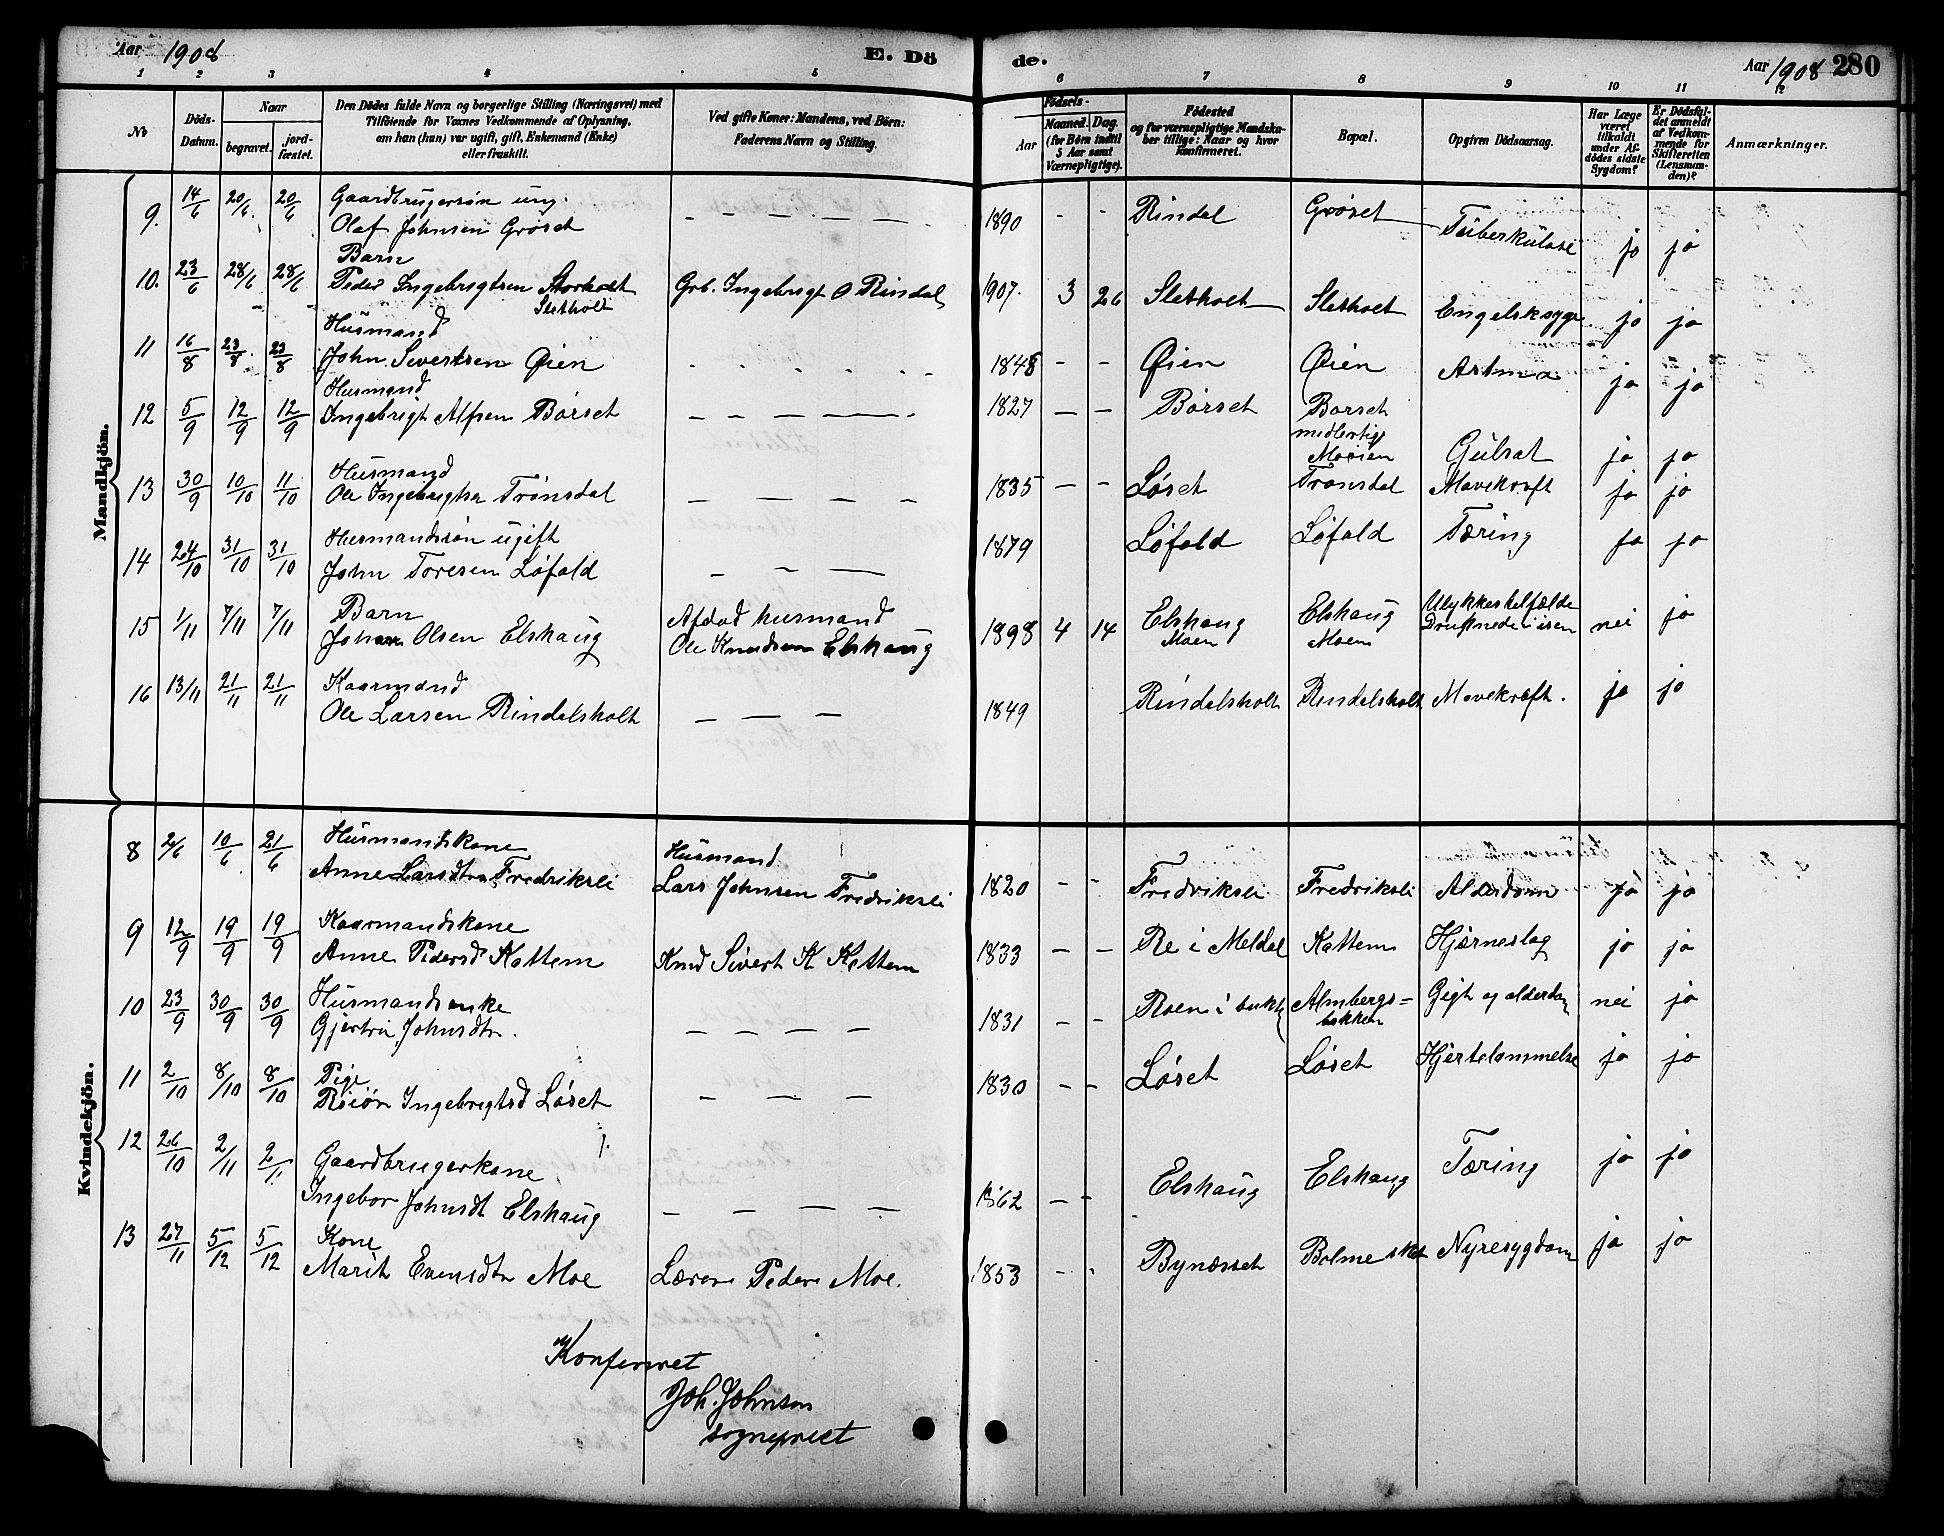 Aar 1908 E. Dö de. Aar 1908 280
1 2 3 4 5 6 7 8 9 10 11 12
No
Döds-Datum.
Naar
begravet.
jord-fæstet.
Den Dödes fulde Navn og borgerlige Stilling (Næringsvei) med
Tilföiende for Voxnes Vedkommende af Oplysning,
om han (hun) var ugift, gift, Enkemand (Enke)
eller fraskilt.
Ved gifte Koner: Mandens, ved Börn:
Faderens Navn og Stilling.
Födsels-
Aar
Maaned. Dag.
(for Börn indtil
5 Aar samt
Værnepligtige).
Födested
og for værnepligtige Mandska-
ber tillige: Naar og hvor
konfirmeret.
Bopæl.
Opgiven Dödsaarsag.
Har Læge
været
tilkaldt
under Af-
dödes sidste
Sygdom?
Er Dödsfal-
det anmeldt
af Vedkom-
mende for
Skifteretten
(Lensman-
den)?
Anmærkninger.
Mandkjön.
9. 14/6 20/6 20/6 Gaardbrugersön ung.
Olaf Johnsen Grøset — — — — — 1890 - - Rindal Grøset Tuberkulose jo jo
Barn
10. 23/6 28/6 28/6 Peder Ingebrigtsen Storholt Grb. Ingebrigt O Rindal 1907. 3 26 Sletholt Sletholt Engelsksyge jo jo
Sletholt
Husmand
11 16/8 23/8 23/8 John Sivertsen Øien 1848 - - Øien Øien Astma jo jo
Husmand
12 5/9 12/9 12/9 Ingebrigt Alfsen Børset — — — — 1827 — — Børset Børset
midlertig
Moøien Gulsot jo jo
Husmand
13 30/9 10/10 11/10 Ole Ingebrigtsn Trönsdal — — — — 1835 - - Løset Trönsdal Mavekræft jo jo
Husmandssön ugift
14 24/10 31/10 31/10 John Toresen Löfald — — — 1879 Löfald Löfald Tæring jo jo
Barn Afdød husmand
15 1/11 7/11 7/11 Johan Olsen Elshaug Ole Knudsen Elshaug 1898 4 14 Elshaug Elshaug Ulykkestilfælde
Moen Moen Druknede i isen nei jo
Kaarmand
16 13/11 21/11 21/11 Ole Larsen Rindalsholt — — — 1849 Rindalsholt Rindalsholt Mavekræft. jo jo
Kvindekjön.
Husmandskone Husmand
8 2/6 10/6 21/6 Anne Larsdtr Fredriksli Lars Johnsen Fredriksli 1820 - - Fredriksli Fredriksli Alderdom jo jo
Kaarmandskone
9 12/9 19/9 19/9 Anne Pedersd Kattem Kmd Sivert K Kattem 1833 — — Re i Meldal Kattem Hjærneslag jo jo
Husmandsenke
10 23/9 30/9 30/9 Gjertru Johnsdtr. — — — — 1831 — - Roen i Almbergs=
bakken Gigt og alderdom nei jo
Pige
11 2/10 8/10 8/10 Ingebrigtsd Løset — — — 1830 - - Løset Løset Hjertelammelse jo jo
12 26/10 2/11 2/11 Gaardbrugerkone
Ingebor Johnsdt Elshaug — — — — 1862 — - Elshaug Elshaug Tæring jo jo
13 27/11 5/12 5/12 Kone
Marit Evensdtr Moe Lærer Peder Moe. 1853 - - Bynesset Bolme Nyresygdom jo jo
Konfereret
Joh. Johnson
sogneprest